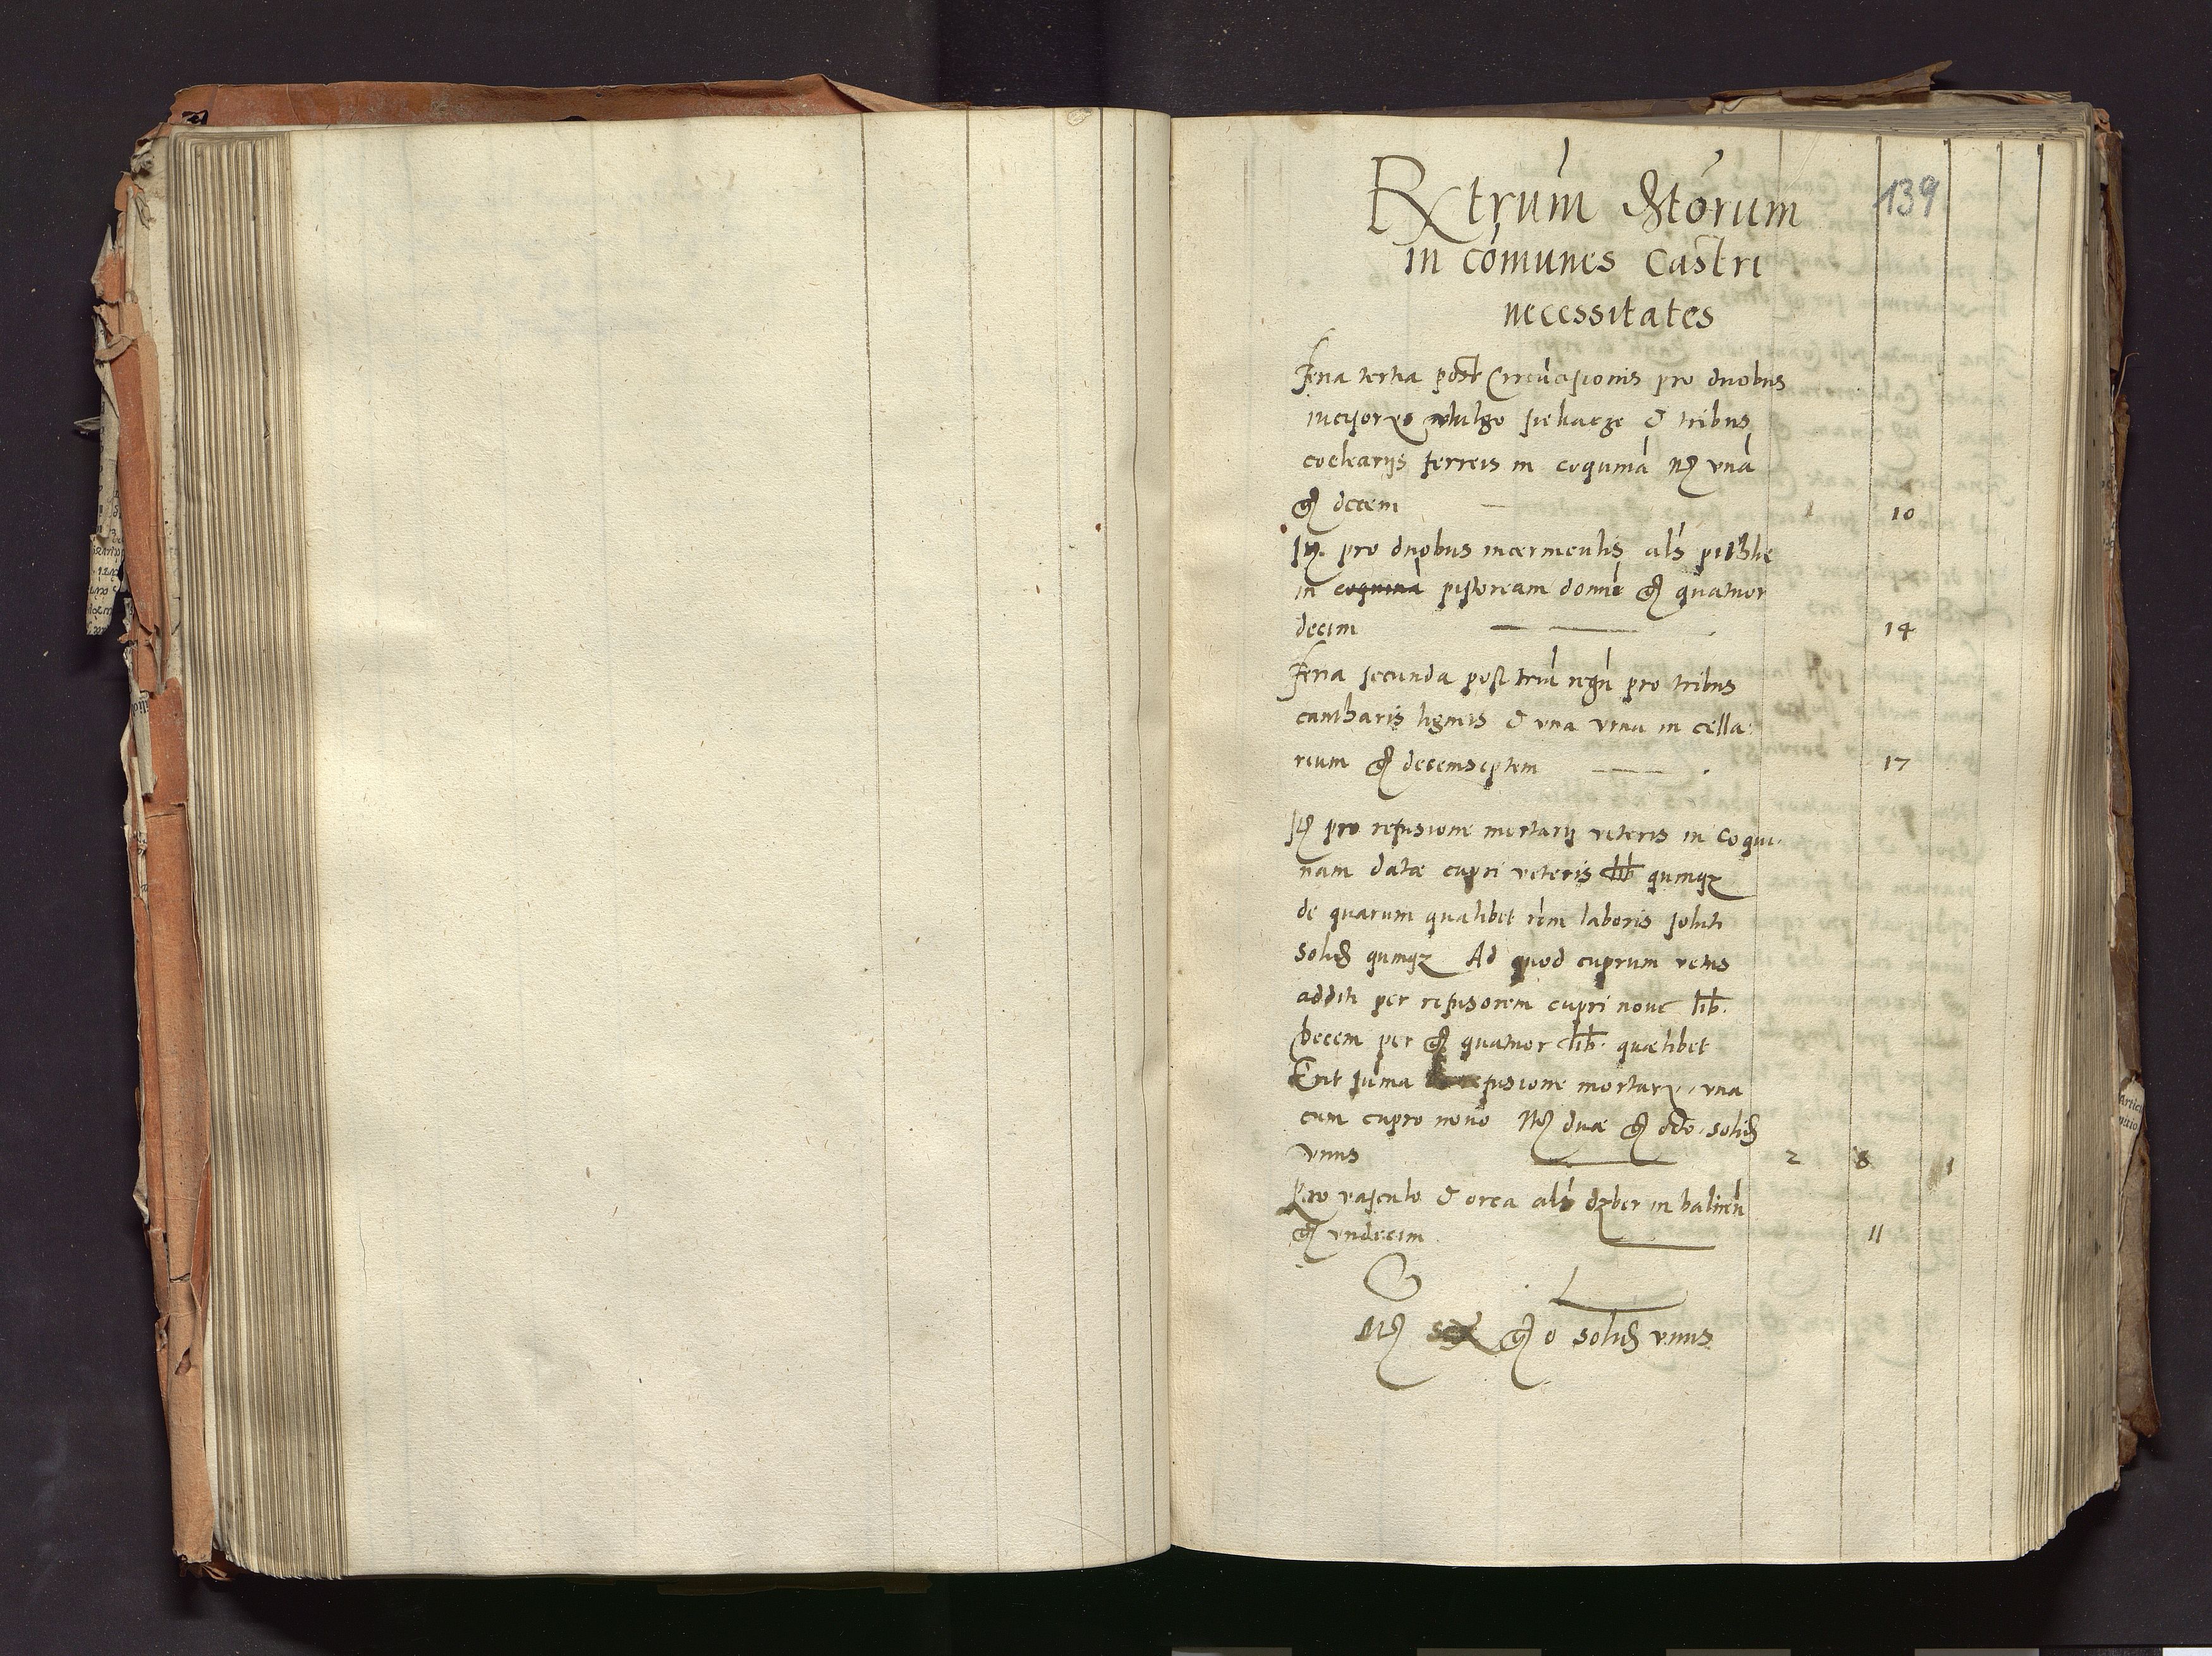 139
Rxtrum Exptorum
in cómunes Castri
necessitates
Feria tertia post Circucisionis pro duobus
incisorxs vulgo siekacze & tribus
cocleariis ferreis in coquina mr una
gr decem 1 10
It pro duobus incerniculis als pithlie
in coquina pistoream domu gr quatuor
decim 14
Feria secunda post triu regu pro tribus
cantharis ligneis & una urna in cella
rium gr decemseptem 17
It pro refusione mortarii veteris in coqui
nam datae cupri veteris lib quinqz
de quarum qualibet rem laboris soluti
solid quinqz Ad quod cuprum vetus
additi per refusorem cupri noue lib.
Decem per gr quatuor lib. quaelibet
Erit suma refusione mortarx una
cum cupro nouo Mr duae gr octo solid
unus 2 8 1
Pro vasculo & orca als dzber in balneu
gr undecim 11
Mr sex gr 0 solid unus